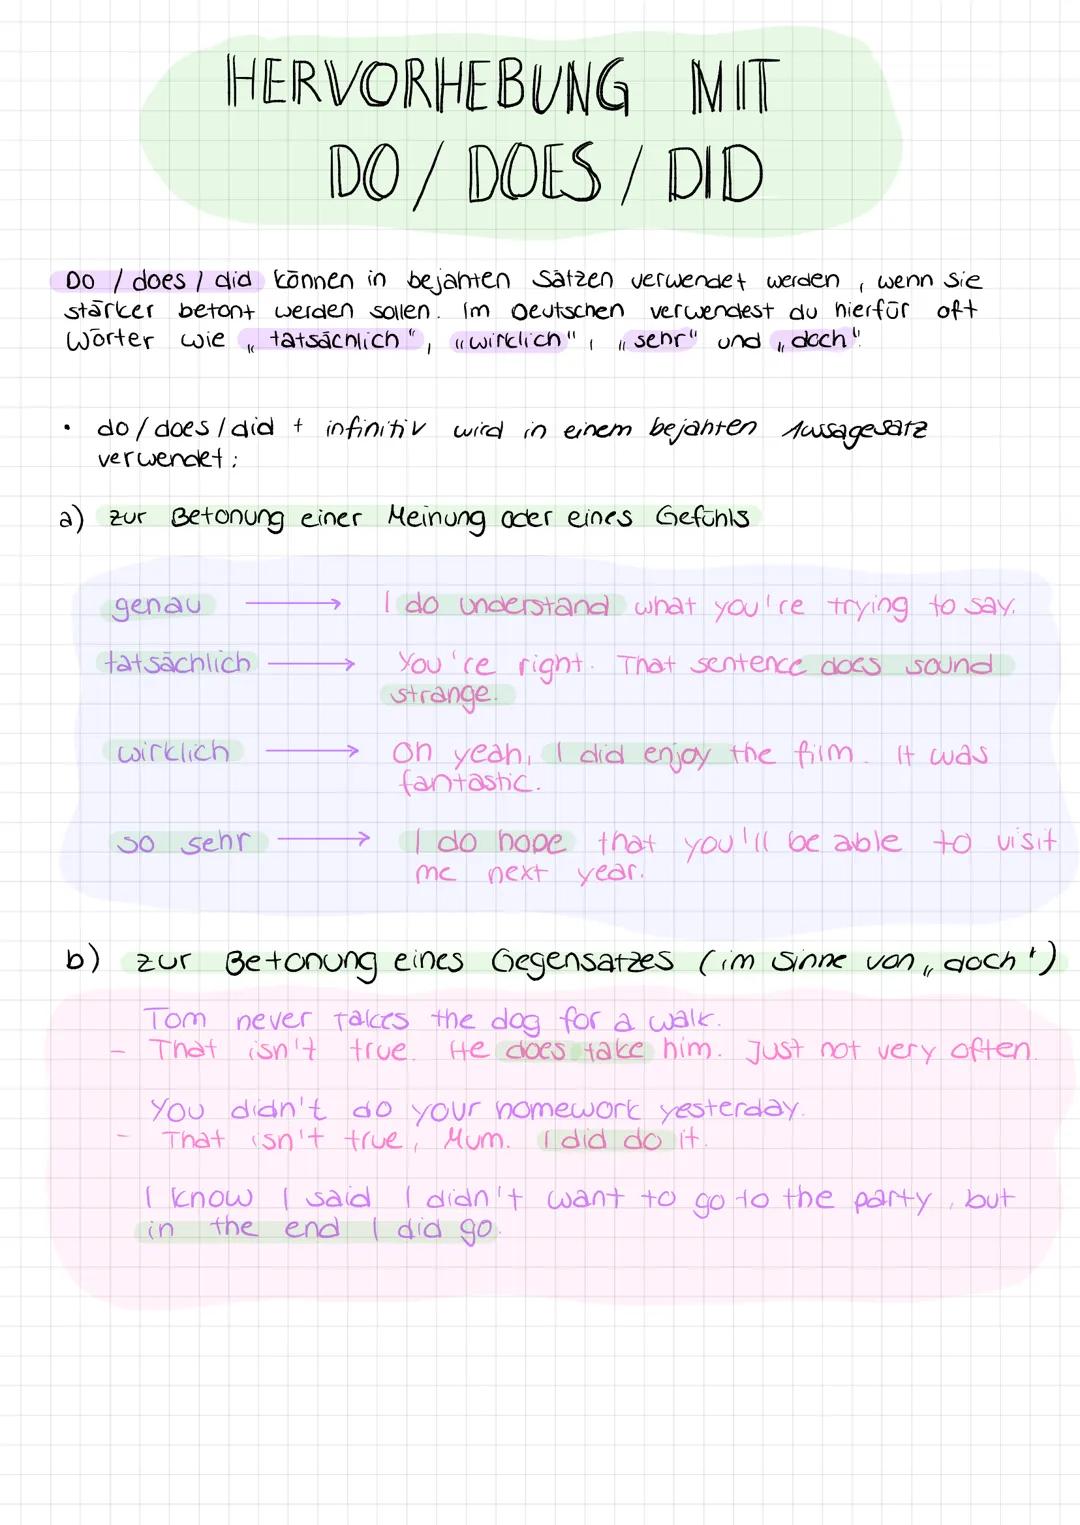 HERVORHEBUNG MIT
DO / DOES / DID
Do / does / did können in bejahten Sätzen verwendet werden, wenn sie
stärker betont werden sollen. Im Deutschen verwendest du hierfür oft
Wörter wie „tatsächlich", „wirklich", „sehr" und „doch".
• do / does / did + infinitiv wird in einem bejahten Aussagesatz
verwendet:
a) zur Betonung einer Meinung oder eines Gefühls
genau → I do understand what you're trying to say.
tatsächlich → You're right. That sentence does sound
strange.
wirklich → Oh yeah, I did enjoy the film. It was
fantastic.
so sehr → I do hope that you'll be able to visit
me next year.
b) zur Betonung eines Gegensatzes (im Sinne von „doch")
Tom never takes the dog for a walk.
- That isn't true. He does take him. Just not very often.
You didn't do your homework yesterday.
- That isn't true, Mum. I did do it.
I know I said I didn't want to go to the party, but
in the end I did go.